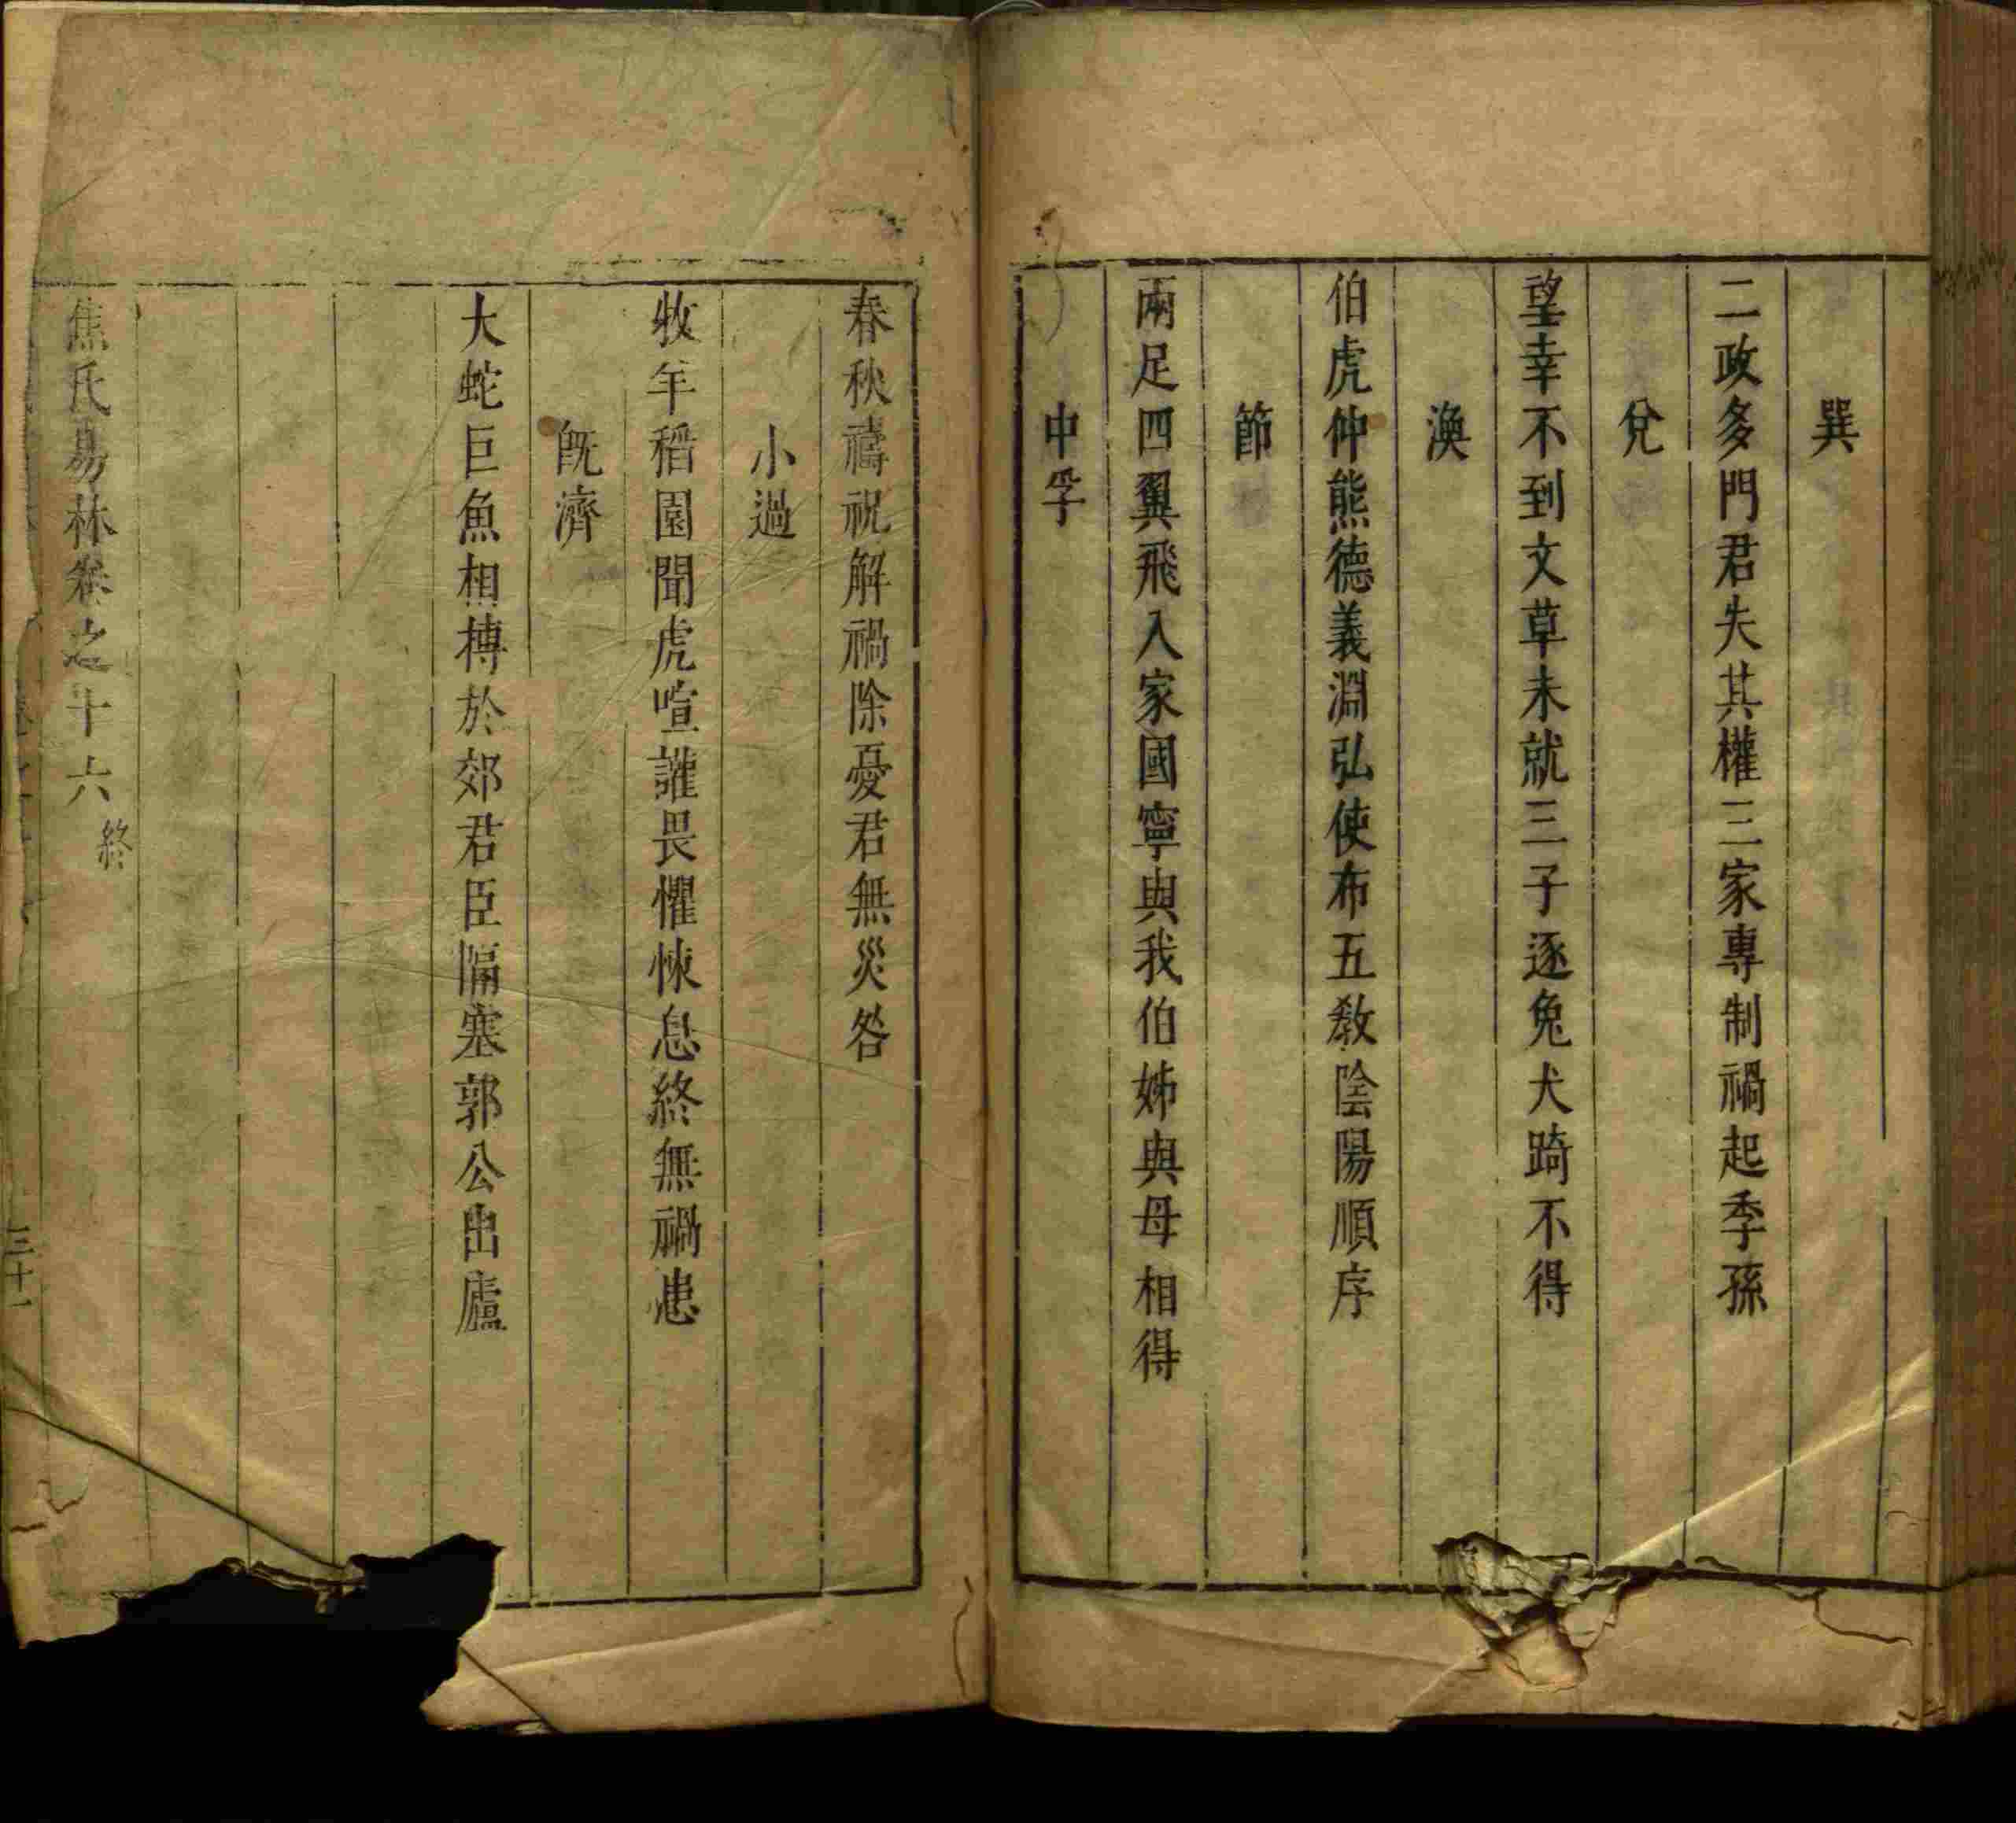 巽
二政多門君失其權三家專制禍起季孫
兌
望幸不到文草未就三子逐兔犬踦不得
渙
伯虎仲熊德義淵弘使布五教陰陽順序
節
兩足四翼飛入家國寧與我伯姊與母相得
中孚
春秋禱祝解禍除憂君無災咎
小過
牧羊稻園聞虎喧讙畏懼悚息終無禍患
旣濟
大蛇巨魚相摶於郊君臣隔塞郭公出廬
焦氏易林卷之十六終
三十一